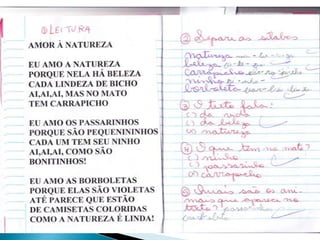 ① LEITURA
AMOR À NATUREZA
EU AMO A NATUREZA
PORQUE NELA HÁ BELEZA
CADA LINDEZA DE BICHO
AI,AI,AI, MAS NO MATO
TEM CARRAPICHO
EU AMO OS PASSARINHOS
PORQUE SÃO PEQUENININHOS
CADA UM TEM SEU NINHO
AI,AI,AI, COMO SÃO
BONITINHOS!
EU AMO AS BORBOLETAS
PORQUE ELAS SÃO VIOLETAS
ATÉ PARECE QUE ESTÃO
DE CAMISETAS COLORIDAS
COMO A NATUREZA É LINDA!
② Separe as sílabas
natureza na-tu-re-za
beleza
carrapicho
ninho
borboleta
③ O texto fala:
( ) da roda
( ) da beleza
natureza
④ O que tem no mato?
( ) ninho
( ) passarinho
carrapicho
⑤ Quais são os ani-
mais que aparece no
texto?